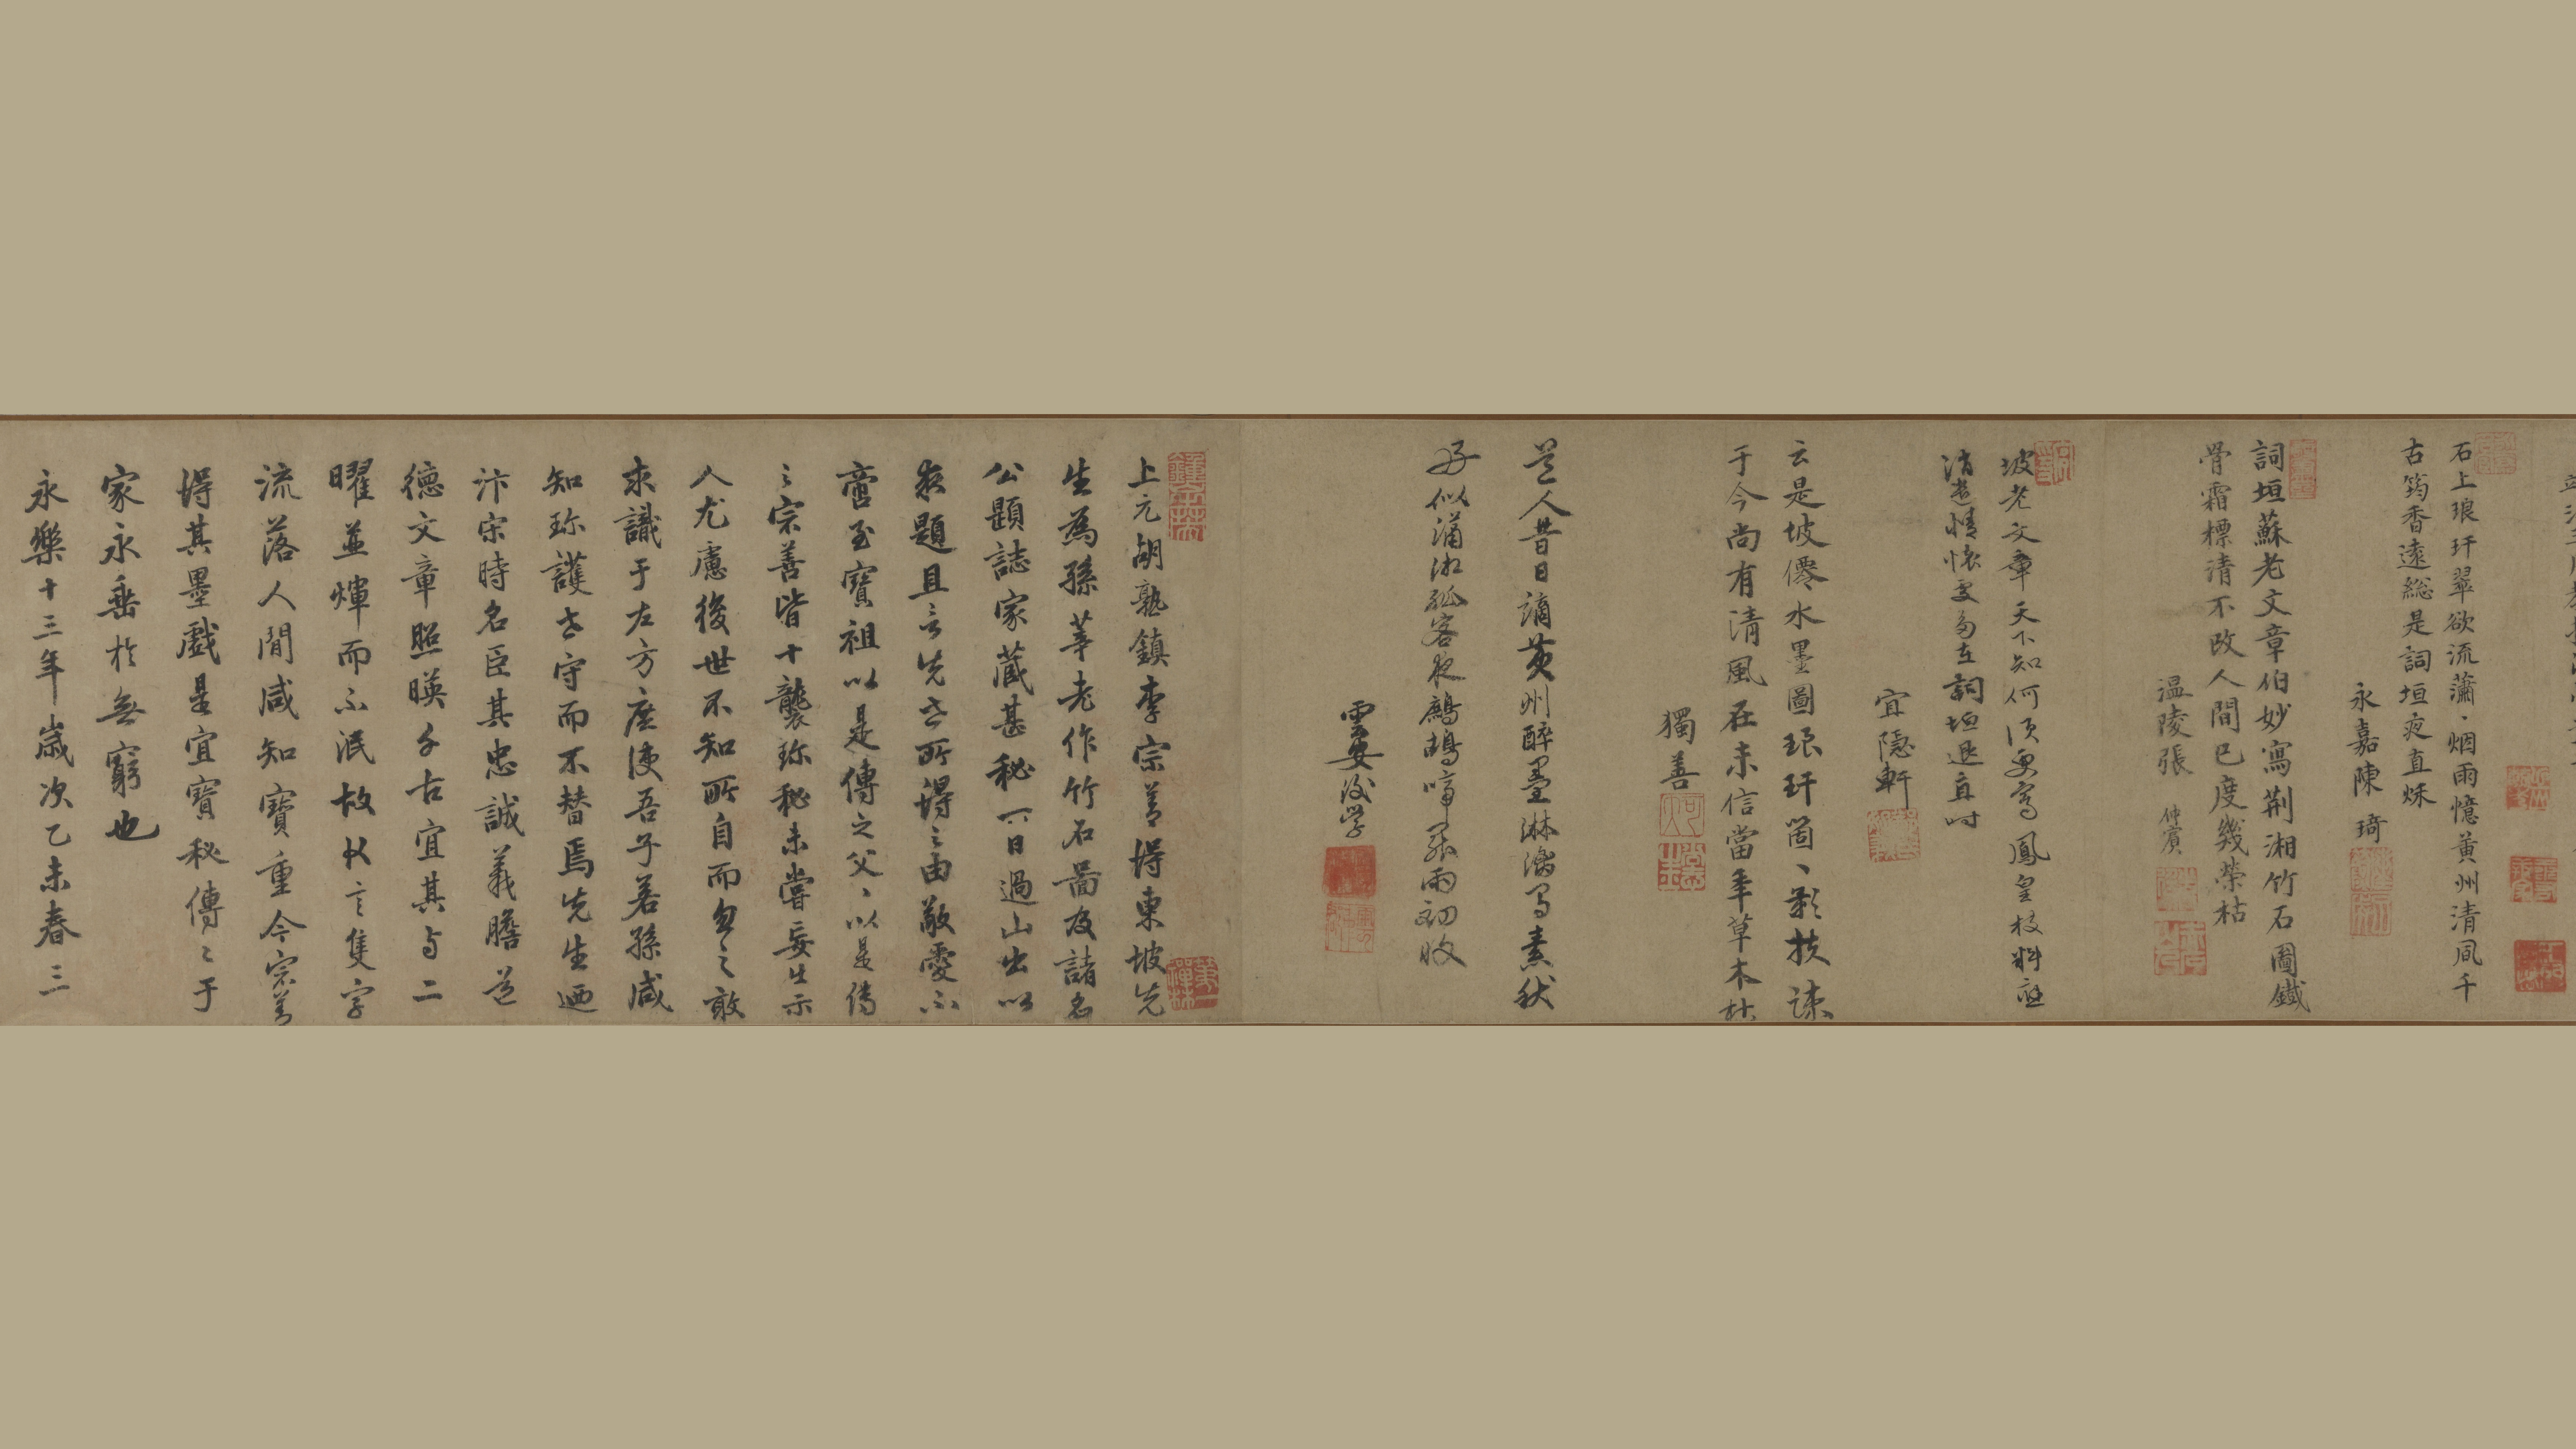 石上琅玕翠欲流蕭〻烟雨憶黃州清風千
古筠香遠総是詞垣夜直秋
永嘉陳琦
詞垣蘇老文章伯妙寫荆湘竹石圖鐵
骨霜標清不改人間已度幾榮枯
温陵張仲賓
坡老文章天下知何須更寫鳳皇枝料應
清道情懷處多在詞垣退直時
宜隱軒
云是坡僊水墨圖琅玕箇〻影扶疎
于今尚有清風在未信當年草木枯
獨善
道人昔日謫黄州醉墨淋漓寫素秋
好似瀟湘孤客夜鷓鴣啼罷雨初收
雲安後學
上元胡熟鎮李宗善得東坡先
生為孫莘老作竹石啚及諸名
公題誌家藏甚秘一日過山出以
求題且言先世所得之由敝靈不
啻至寶祖以是傳之父〻以是傳
之宗善皆十襲珎秘未嘗妄出示
人尤慮後世不知所自而忽之敢
求識于左方庶使吾子若孫咸
知珎護世守而不替焉先生廼
汴宋時名臣其忠誠義膽道
德文章照暎千古宜其与二
曜並煇而不泯故片言隻字
流落人間咸知寶重今宗善
得其墨戲是宜寶秘傳之于
家永垂於無窮也
永樂十三年歲次乙未春三